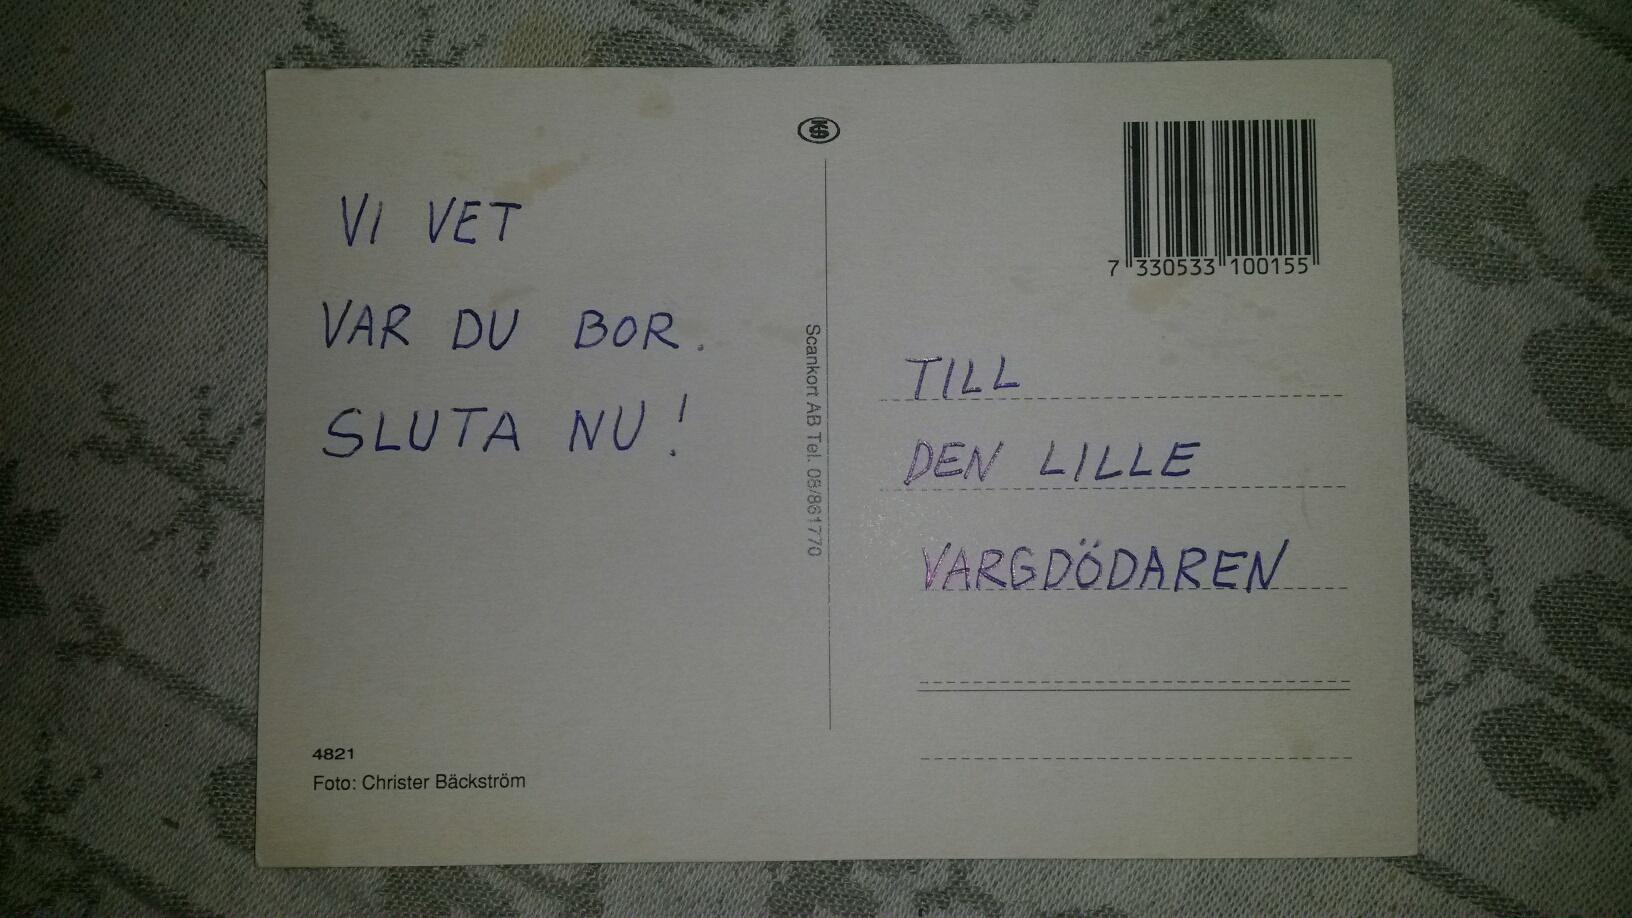 VI VET
VAR DU BOR.
SLUTA NU!
4821
Foto: Christer Bäckström
Scankort AB Tel. 08/861770
7 330533 100155
TILL
DEN LILLE
VARGDÖDAREN